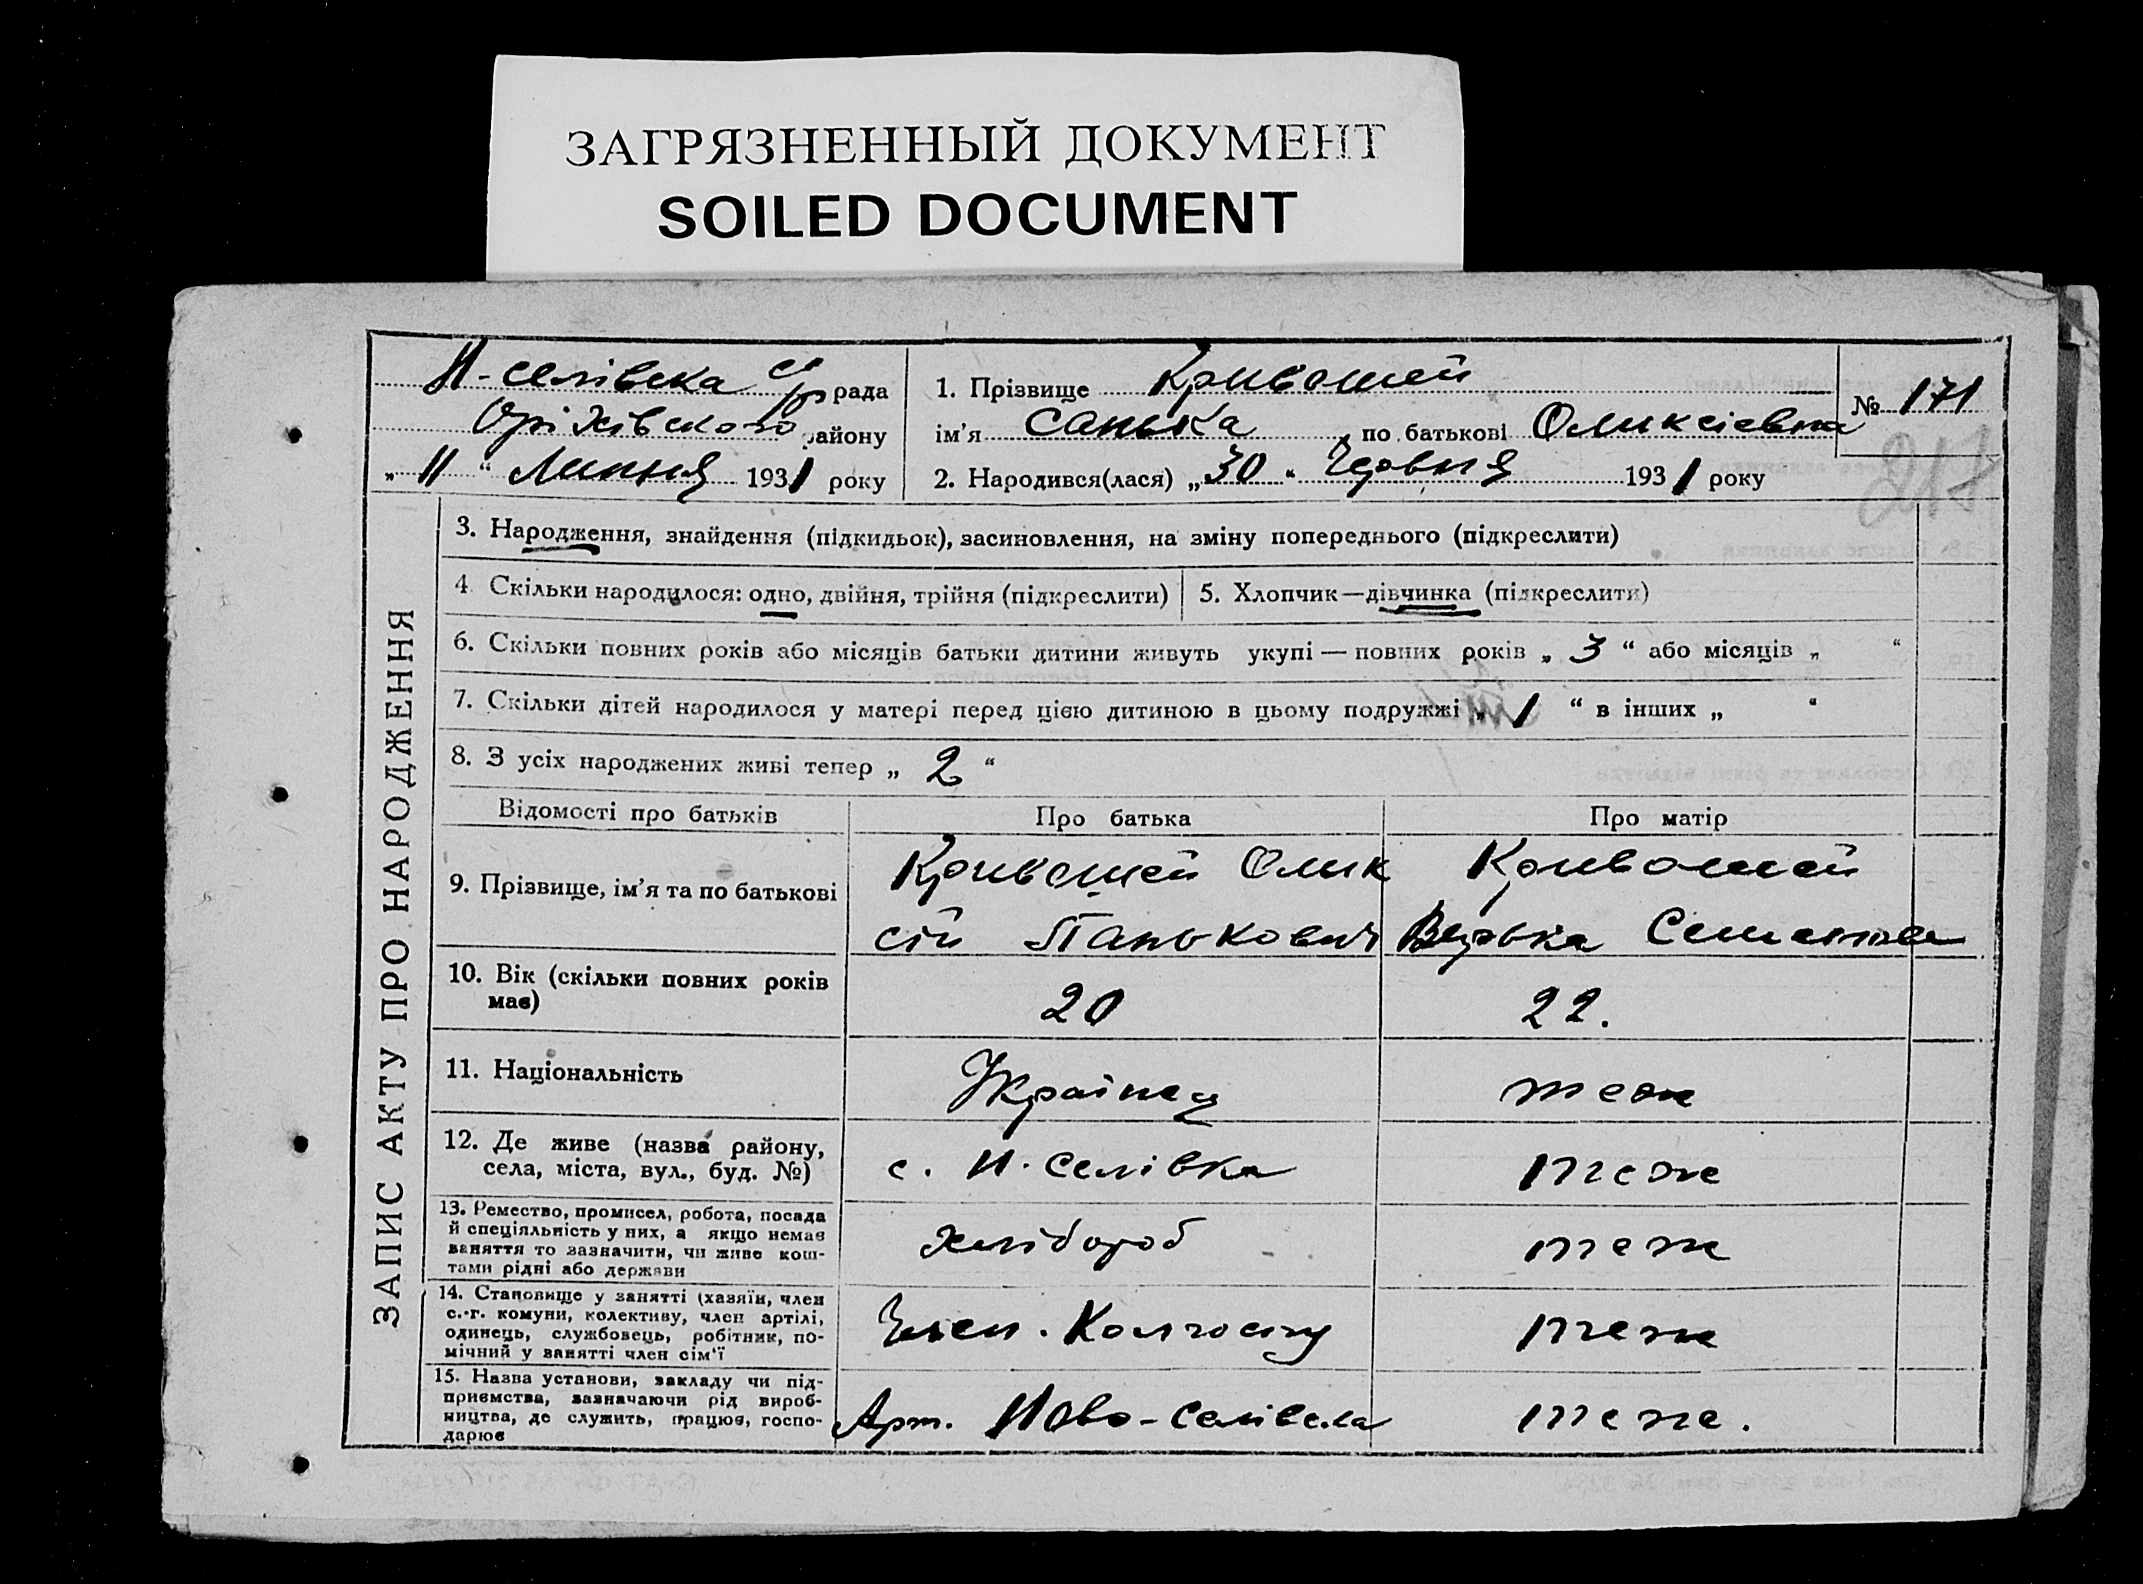 ЗАГРЯЗНЕННЫЙ ДОКУМЕНТ
SOILED DOCUMENT
Н-селівска с/р рада
Оріхівского району
„ 11 “ Липня 1931 року
1. Прізвище Кривошей
ім’я Санька, по батькові Оликсіевна
№ 171
217
2. Народився(лася) „ 30 “ Червня 1931 року
ЗАПИС АКТУ ПРО НАРОДЖЕННЯ
3. Народження, знайдення (підкидьок), засиновлення, на зміну попереднього (підкреслити)
4. Скільки народилося: одно, двійня, трійня (підкреслити)
5. Хлопчик—дівчинка (підкреслити)
6. Скільки повних років або місяців батьки дитини живуть укупі — повних років „ 3 “ або місяців „ “
7. Скільки дітей народилося у матері перед цією дитиною в цьому подружжі „ 1 “ в інших „ “
8. З усіх народжених живі тепер „ 2 “
Відомості про батьків
Про батька
Про матір
9. Прізвище, ім’я та по батькові
Кривошей Олик
сій Панькович
Кривошей
Вярька
10. Вік (скільки повних років
має)
20
22.
11. Національність
Українец
теж
12. Де живе (назва району,
села, міста, вул., буд. №)
с. Н. Селівка
теж
13. Ремество, промисел, робота, посада
й спеціяльність у них, а якщо немає
заняття то зазначити, чи живе кош-
тами рідні або держави
хлібороб
теж
14. Становище у занятті (хазяїн, член
с.-г. комуни, колективу, член артілі,
одинець, службовець, робітник, по-
мічний у занятті член сім’ї
Член. Колгоспу
теж
15. Назва установи, закладу чи під-
приємства, зазначаючи рід вироб-
ництва, де служить, працює, госпо-
дарює
Арт. Ново-Селівска
теж.